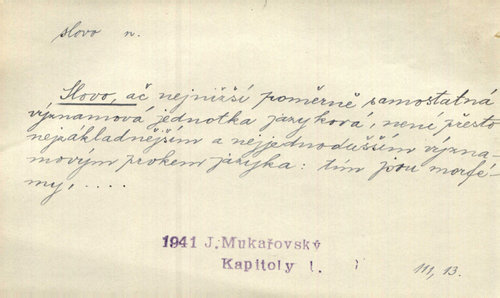 slovo n.
Slovo, ač nejnižší poměrně samostatná
významová jednotka jazyková, není přesto
nejzákladnějším a nejjednodušším význa-
movým prvkem jazyka: tím jsou morfé-
my, ....
1941 J. Mukařovský
Kapitoly I.
111, 13.